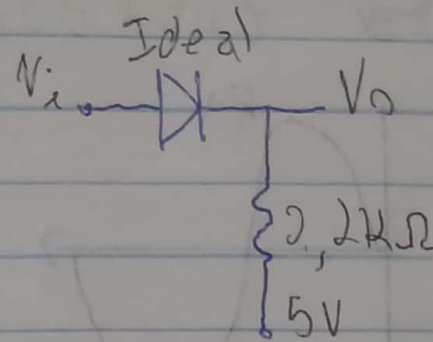 Ideal
Vi
Vo
2,2KΩ
5V